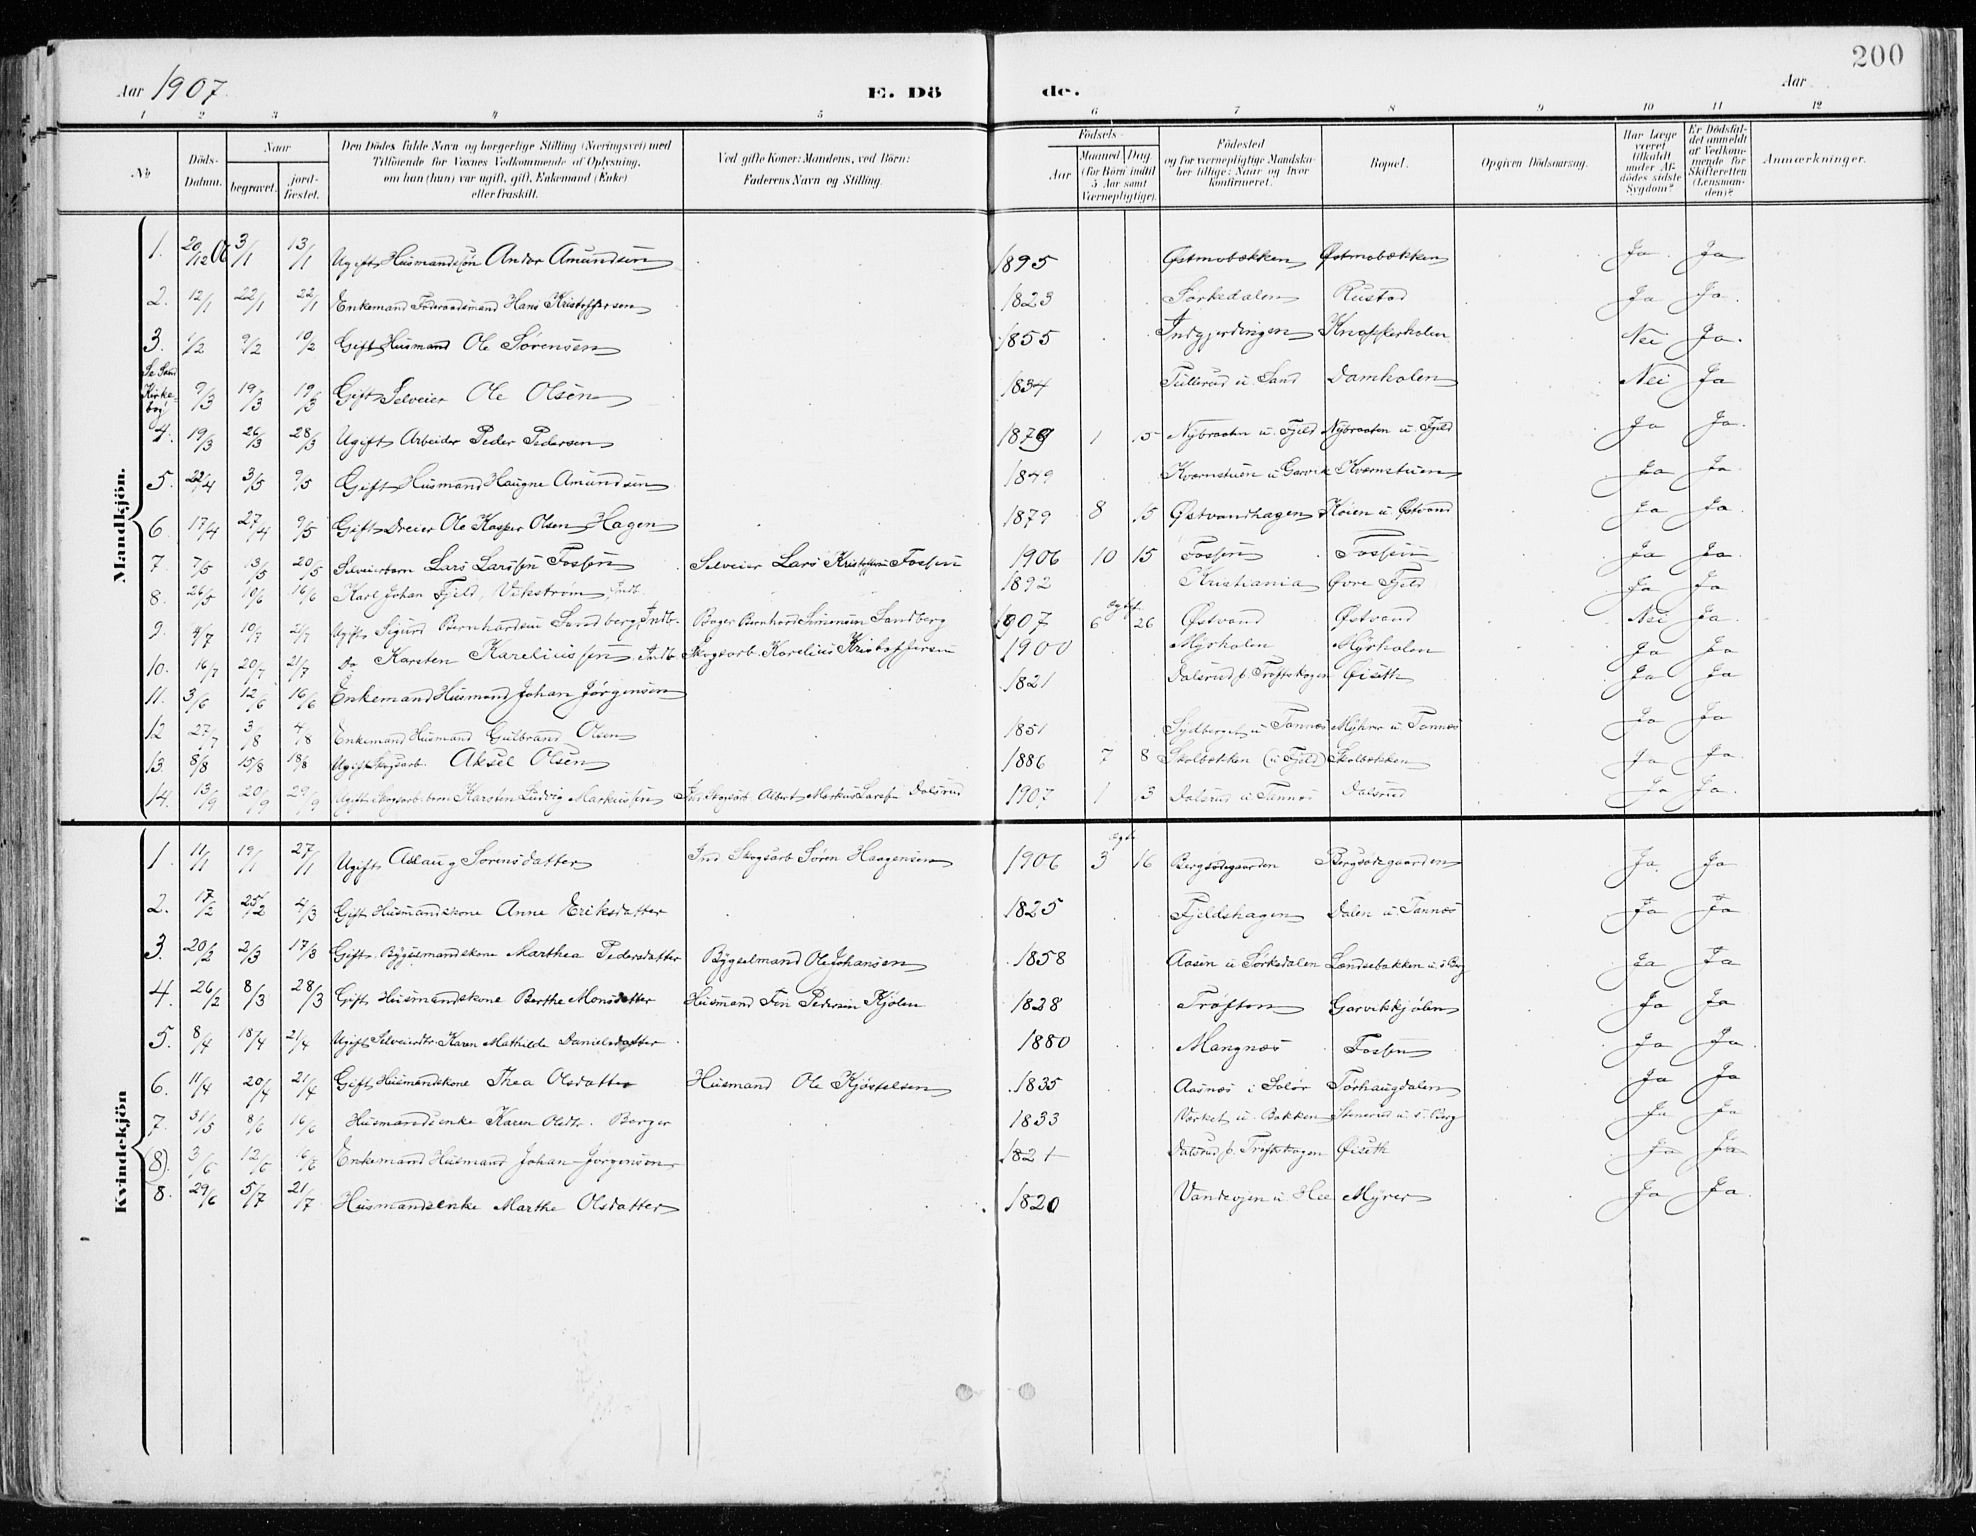 Aar 1907. E. Dö de. Aar 200
1 2 3 4 5 6 7 8 9 10 11 12
No
Döds-Datum.
Naar
begravet.
jord-fæstet.
Den Dödes fulde Navn og borgerlige Stilling (Næringsvei) med Tilföiende for Voxnes Vedkommende af Oplysning, om han (hun) var ugift, gift, Enkemand (Enke) eller fraskilt.
Ved gifte Koner: Mandens, ved Börn: Faderens Navn og Stilling.
Födsels-
Aar
Maaned Dag (for Börn indtil 5 Aar samt Værnepligtige).
Födested og for værnepligtige Mandskaber tillige: Naar og hvor konfirmeret.
Bopæl.
Opgiven Dödsaarsag.
Har Læge været tilkaldt under Afdödes sidste Sygdom?
Er Dödsfaldet anmeldt af Vedkommende for Skifteretten (Lensmanden)?
Anmærkninger.
Mandkjön.
1. 20/12 06 3/1 13/1 Ugift Husmandssøn Andor Amundsen 1895 Østmobækken Østmobækken Ja Ja
2. 12/1 22/1 22/1 Enkemand Føderaadsmand Hans Kristoffersen 1823 Sørkedalen Rustad Ja Ja.
3. 1/2 9/2 10/2 Gift Husmand Ole Sörensen 1855 Indgjerdingen Knapperholen Nei Ja.
Se Sand Kirkebog! 9/3 19/3 19/3 Gift Selveier Ole Olsen 1834 Tullerud u. Sand Damholen Nei Ja
4. 19/3 26/3 28/3 Ugift Arbeider Peder Pedersen 1879 1 15 Nybraaten u. Fjeld Nybraaten u. Fjeld Ja Ja.
5. 22/4 3/5 9/5 Gift Husmand Haagne Amundsen 1849 Kværnstuen u Garvik Kværnstuen Ja Ja.
6. 17/4 27/4 9/5 Gift Dreier Ole Kasper Olsen Hagen 1879 8 15 Østvandhagen Koien u. Østvand Ja Ja.
7. 7/5 13/5 20/5 Selveierbarn Lars Larssen Fossen Selveier Lars Kristoffersen Fossen 1906 10 15 Fossen Fossen Ja Ja
8. 26/5 10/6 16/6 Karl Johan Fjeld, Vikstrøm, Indb. 1892 Kristiania Øvre Fjeld Ja Ja
9. 4/7 10/7 21/7 Ugift Sigurd Bernhardsen Sandberg, Indb. Bager Bernhard Simensen Sandberg 1907 6 26 Østvand Østvand Nei Ja.
10. 16/7 20/7 21/7 Do Karsten Kareliussen, Indb. Skogsarb. Karelius Kristoffersen 1900 Myrholen Myrholen Ja Ja
11. 3/6 12/6 16/6 Enkemand Husmand Johan Jørgensen 1821 Dalsrud p. Trøftskogen Øiseth Ja Ja
12 27/7 3/8 4/8 Enkemand Husmand Gulbrand Olsen 1851 Sydberget u Tannæs Myhrer u Tannæs Ja Ja
13. 8/8 15/8 18/8 Ugift Skogsarb. Aksel Olsen 1886 7 8 Skolbækken (u Fjeld) Skolbækken Ja Ja.
14. 13/9 20/9 29/9 Ugift Skogsarb. barn Karsten Ludvig Markussen Ind. Skogsarb Albert Markus Larssen Dalsrud 1907 1 3 Dalsrud u Tannæs Dalsrud Ja Ja.
Kvindekjön
1. 11/1 19/1 27/1 Ugift Aslaug Sørensdatter Ind Skogsarb Søren Haagensen 1906 3 16 Bergsødegaarden Bergsødegaarden Ja. Ja
2. 17/2 25/2 4/3 Gift Husmandskone Anne Eriksdatter 1825 Fjeldshagen Dalen u. Tannæs Ja Ja
3. 20/2 2/3 17/3 Gift Bygselmandskone Marthea Pedersdatter Bygselmand Ole Johansen 1858 Aasen u Sørkedalen Lændsebakken u. s. Berg Ja Ja
4. 26/2 8/3 28/3 Gift Husmandskone Berthe Monsdatter Husmand Fin Pedersen Kjølen 1828 Trøften Garvikkjølen Ja Ja
5. 8/4 18/4 21/4 Ugift Selveierdtr. Karen Mathilde Danielsdatter 1880 Mangnæs Fossen Ja Ja.
6. 11/4 20/4 21/4 Gift Husmandskone Thea Olsdatter Husmand Ole Kjøstelsen 1835 Aasnæs i Solør Tørhaugdalen Ja Ja
7. 31/5 8/6 16/6 Husmandsenke Karen Olsdtr. Berger 1833 Værket u. Bakken Stenerud u. s. Berg Ja Ja
(8). 3/6 12/6 16/6 Enkemand Husmand Johan Jørgensen 1821 Dalsrud p. Trøftskogen Øiseth Ja Ja
8. 29/6 5/7 21/7 Husmandsenke Marthe Olsdatter 1820 Vandevjen u Hee Myrer Ja Ja.